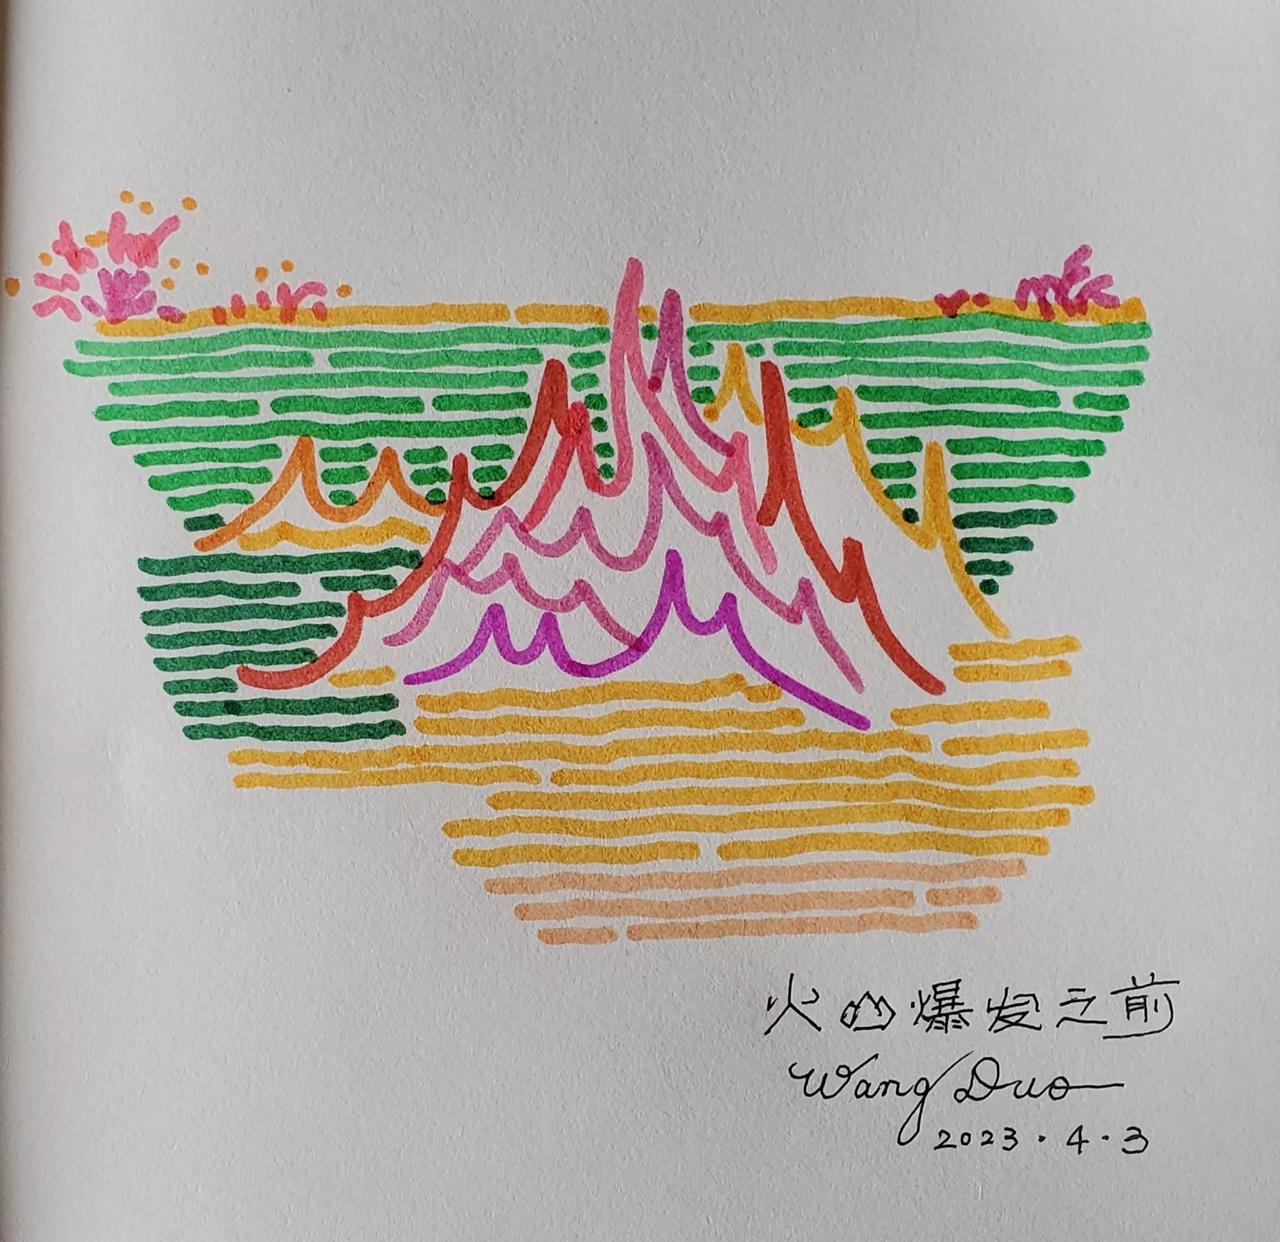 火山爆发之前
Wang Duo
2023.4.3